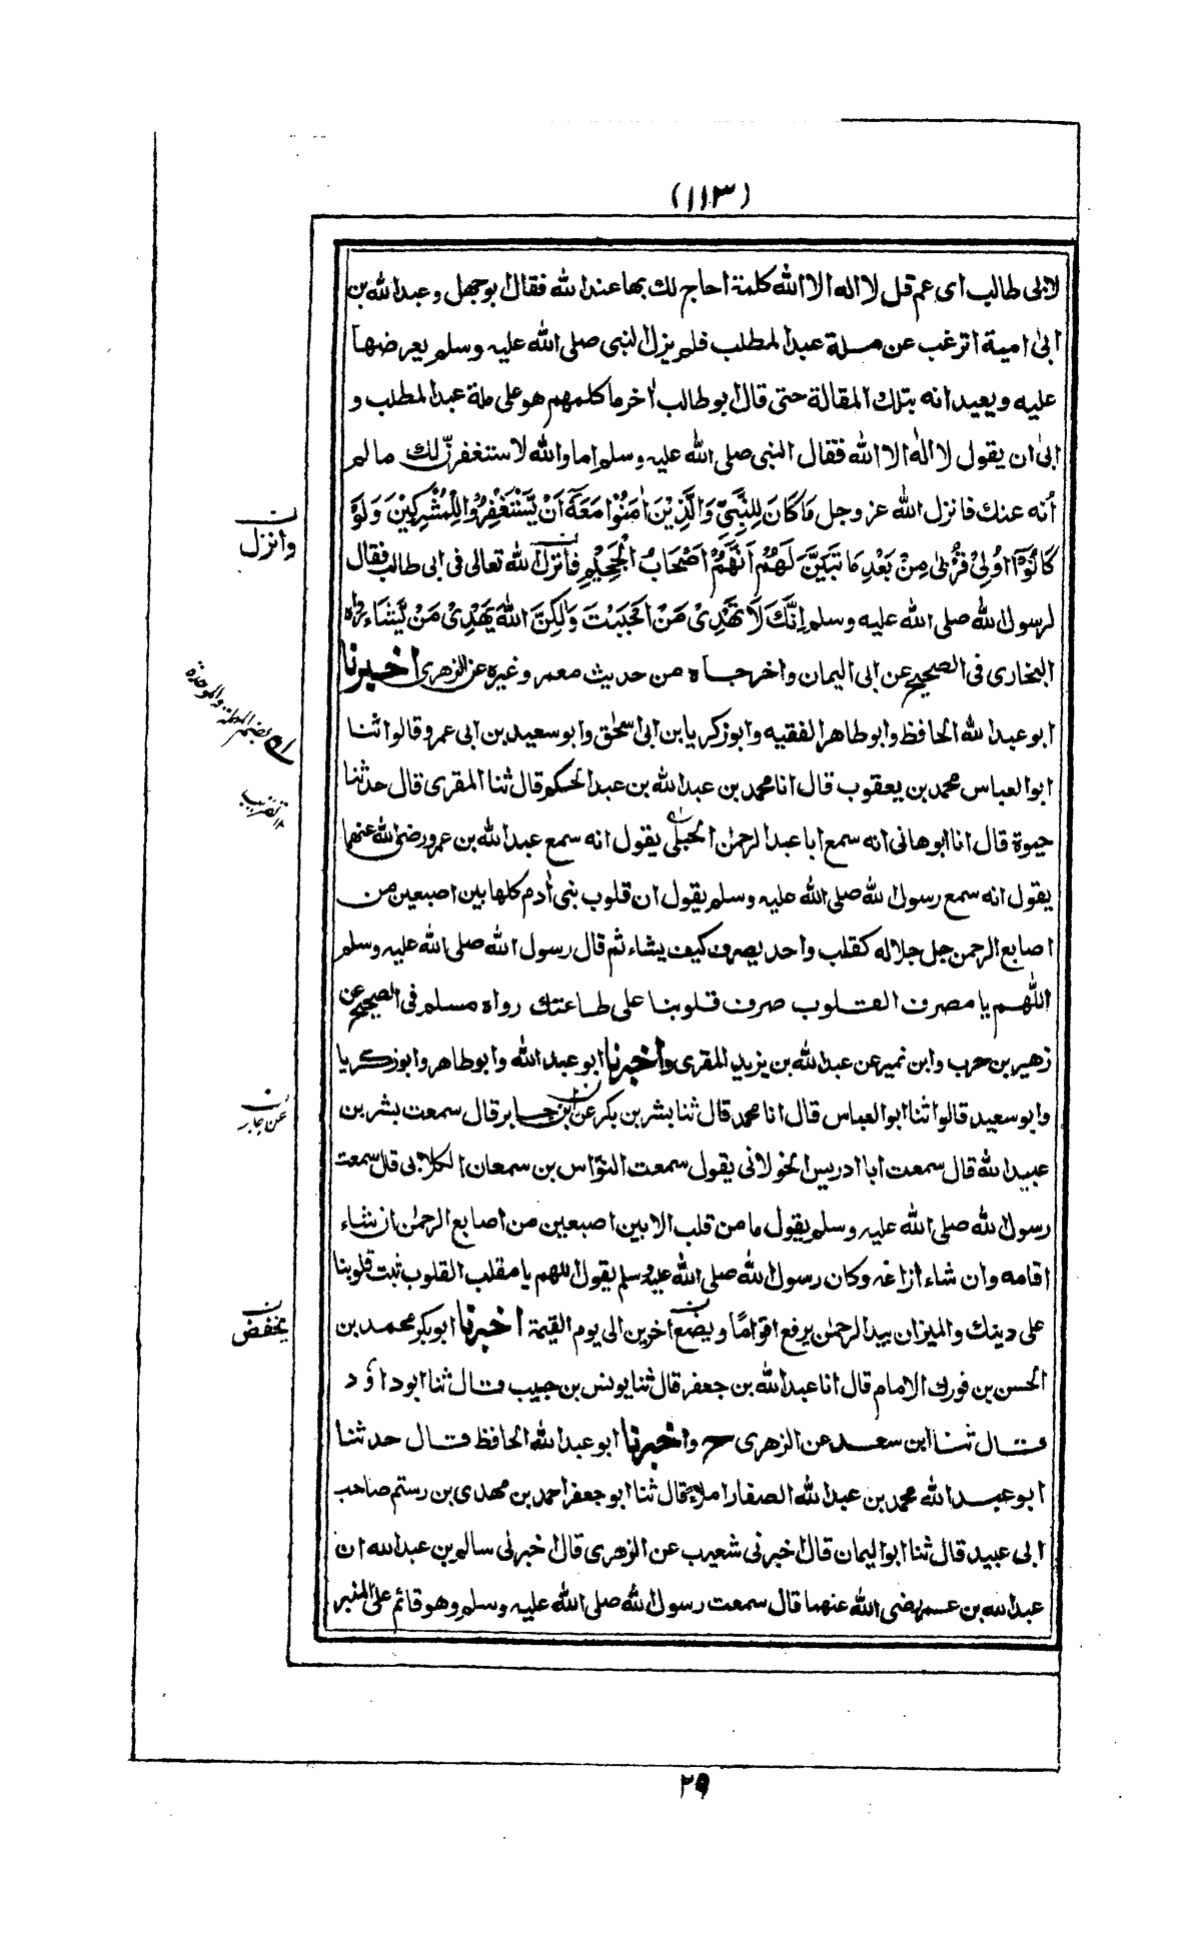 (١١٣)
لابى طالب اى عم قل لا اله الا الله كلمة احاج لك بها عند الله فقال ابو جهل و عبد الله بن
ابى امية اترغب عن ملة عبد المطلب فلم يزل النبى صلى الله عليه وسلم يعرضها
عليه ويعيد انه بتلك المقالة حتى قال ابو طالب اٰخر ما كلمهم هو على ملة عبد المطلب و
ابىٰ ان يقول لا الٰه الا الله فقال النبى صلى الله عليه وسلم اما والله لاستغفرنّ لك ما لم
اُنه عنك فانزل الله عز وجل مَا كَانَ لِلنَّبِيِّ وَالَّذِيْنَ اٰمَنُوْا مَعَهٗ اَنْ يَّسْتَغْفِرُوْا لِلْمُشْرِكِيْنَ وَلَوْ
كَانُوْٓا اُولِيْ قُرْبٰى مِنْ بَعْدِ مَا تَبَيَّنَ لَهُمْ اَنَّهُمْ اَصْحَابُ الْجَحِيْمِ فأنزل الله تعالى فى ابى طالب فقال
لرسول الله صلى الله عليه وسلم اِنَّكَ لَا تَهْدِيْ مَنْ اَحْبَبْتَ وَلٰكِنَّ اللّٰهَ يَهْدِيْ مَنْ يَّشَاءُ رواه
البخارى فى الصحيح عن ابى اليمان واخرجاه من حديث معمر وغيره عن الزهرى اخبرنا
ابو عبد الله الحافظ وابو طاهر الفقيه وابو زكريا بن ابى اسحٰق وابو سعيد بن ابى عمرو قالوا ثنا
ابو العباس محمد بن يعقوب قال انا محمد بن عبد الله بن عبد الحكم قال ثنا المقرى قال حدثنا
حيوة قال انا ابو هانى انه سمع ابا عبد الرحمٰن الحبلى يقول انه سمع عبد الله بن عمرو رضى الله عنهما
يقول انه سمع رسول الله صلى الله عليه وسلم يقول ان قلوب بنى اٰدم كلها بين اصبعين من
اصابع الرحمن جل جلاله كقلب واحد يصرف كيف يشاء ثم قال رسول الله صلى الله عليه وسلم
اللّٰهم يا مصرف القلوب صرف قلوبنا على طاعتك رواه مسلم فى الصحيح عن
زهير بن حرب وابن نمير عن عبد الله بن يزيد المقرى واخبرنا ابو عبد الله وابو طاهر وابو زكريا
وابو سعيد قالوا ثنا ابو العباس قال انا محمد قال ثنا بشر بن بكر عن ابن جابر قال سمعت بشر بن
عبيد الله قال سمعت ابا ادريس الخولانى يقول سمعت النوّاس بن سمعان الكلابى قال سمعت
رسول الله صلى الله عليه وسلم يقول ما من قلب الا بين اصبعين من اصابع الرحمٰن ان شاء
اقامه وان شاء ازاغه وكان رسول الله صلى الله عليه وسلم يقول اللهم يا مقلب القلوب ثبت قلوبنا
على دينك والميزان بيد الرحمٰن يرفع اقوامًا ويضع اٰخرين الى يوم القيمة اخبرنا ابو بكر محمد بن
الحسن بن فورك الامام قال انا عبد الله بن جعفر قال ثنا يونس بن حبيب قال ثنا ابو داؤد
قال ثنا ابن سعد عن الزهرى ح واخبرنا ابو عبد الله الحافظ قال حدثنا
ابو عبد الله محمد بن عبد الله الصفار املاء قال ثنا ابو جعفر احمد بن مهدى بن رستم صاحب
ابى عبيد قال ثنا ابو اليمان قال اخبرنى شعيب عن الزهرى قال اخبرنى سالم بن عبد الله ان
عبد الله بن عمر رضى الله عنهما قال سمعت رسول الله صلى الله عليه وسلم وهو قائم على المنبر
ن
وانزل
بضم المهملة والموحدة
١٢ تقريب
ن
عن جابر
ن
يخفض
٢٩